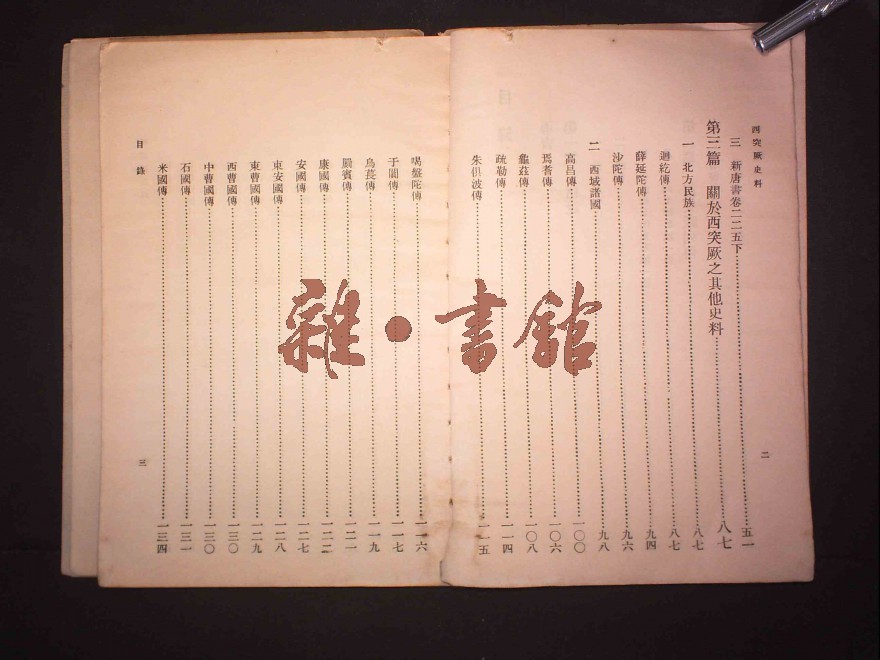 西突厥史料
三　新唐書卷二一五下……五一
第三篇　關於西突厥之其他史料……八七
一　北方民族……八七
迴紇傳……八七
薛延陀傳……九四
沙陀傳……九六
二　西域諸國……九八
高昌傳……一〇〇
焉耆傳……一〇六
龜茲傳……一〇八
疏勒傳……一一四
朱俱波傳……一一五
二
喝盤陀傳……一一六
于闐傳……一一七
烏萇傳……一一九
罽賓傳……一二一
康國傳……一二二
安國傳……一二七
東安國傳……一二八
東曹國傳……一二九
西曹國傳……一三〇
中曹國傳……一三〇
石國傳……一三一
米國傳……一三四
目錄
三
雜·書館